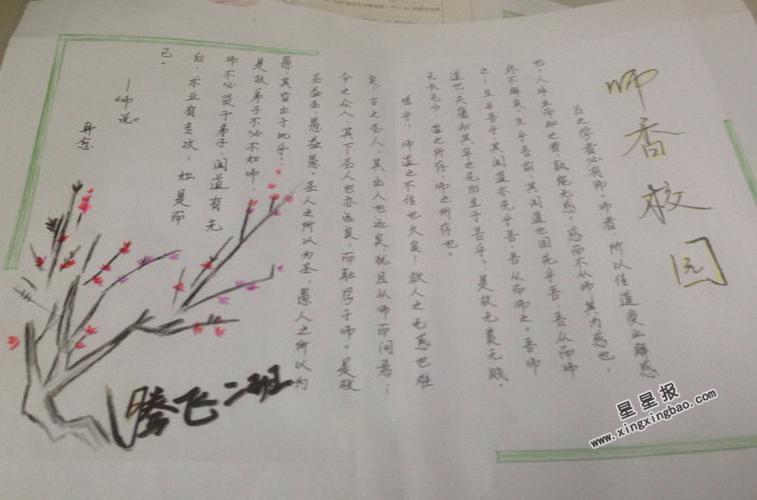 师香校园
古之学者必有师。师者，所以传道受业解惑
也。人非生而知之者，孰能无惑？惑而不从师，其为惑也，
终不解矣。生乎吾前，其闻道也固先乎吾，吾从而师
之；生乎吾后，其闻道亦先乎吾，吾从而师之。吾师
道也，夫庸知其年之先后生于吾乎？是故无贵无贱，
无长无少，道之所存，师之所存也。
嗟乎！师道之不传也久矣！欲人之无惑也难
矣！古之圣人，其出人也远矣，犹且从师而问焉；
今之众人，其下圣人也亦远矣，而耻学于师。是故
圣益圣，愚益愚。圣人之所以为圣，愚人之所以为
愚，其皆出于此乎？
是故弟子不必不如师，
师不必贤于弟子，闻道有先
后，术业有专攻，如是而
已。
——《师说》
韩愈
腾飞二班
星星报
www.xingxingbao.com